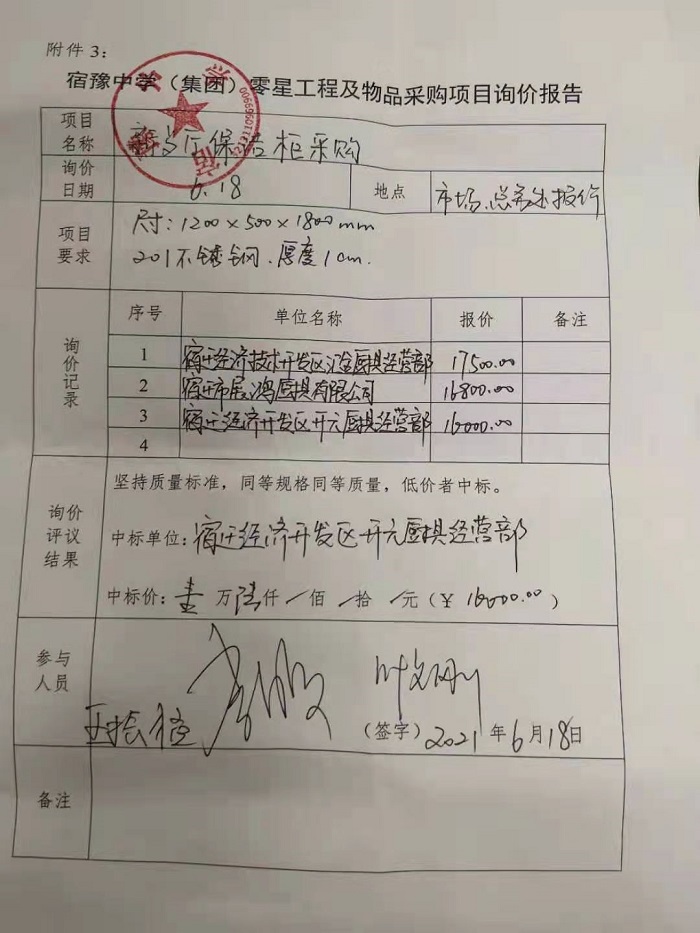 附件3：
宿豫中学（集团）零星工程及物品采购项目询价报告
项目
名称
餐厅保洁柜采购
询价
日期
6.18
地点
市场、总务处报价
项目
要求
尺寸：1200×500×1800mm
201不锈钢、厚度1cm.
询价记录
序号 单位名称 报价 备注
1 宿迁经济技术开发区汇金厨具经营部 17500.00
2 宿迁市展鸿厨具有限公司 16800.00
3 宿迁经济开发区开元厨具经营部 16000.00
4
询价
评议
结果
坚持质量标准，同等规格同等质量，低价者中标。
中标单位：宿迁经济开发区开元厨具经营部
中标价：壹万陆仟/佰/拾/元（¥16000.00）
参与
人员
（签字）2021年6月18日
备注